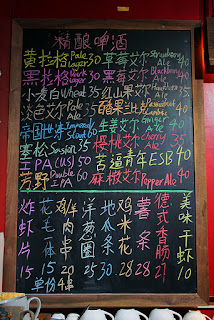 精酿啤酒
黄拉格 Pale Lager 30
草莓艾尔 Strawberry Ale 40
黑拉格 Dark Lager 30
黑莓艾尔 Blackberry Ale 40
小麦白 Wheat 35
红山果艾尔 Ale 40
淡色艾尔 Pale Ale
醋栗 40
帝国世涛 Imperial Stout 60
生姜艾尔 Ginger Ale 40
塞松 Saison 35
樱桃艾尔 Cherry Ale 35
IPA (US) 50
苦逼青年 ESB 40
芳野 Double IPA 60
麻椒艾尔 Pepper Ale 40
炸虾片 15
花毛一体 15
鸡肉串 20
洋葱圈 25
地瓜条 30
鸡米花 28
薯条 28
德式香肠
美味干虾 10
单份4串